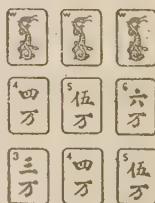 W W W
4 四万 5 伍万 6 六万
3 三万 4 四万 5 伍万